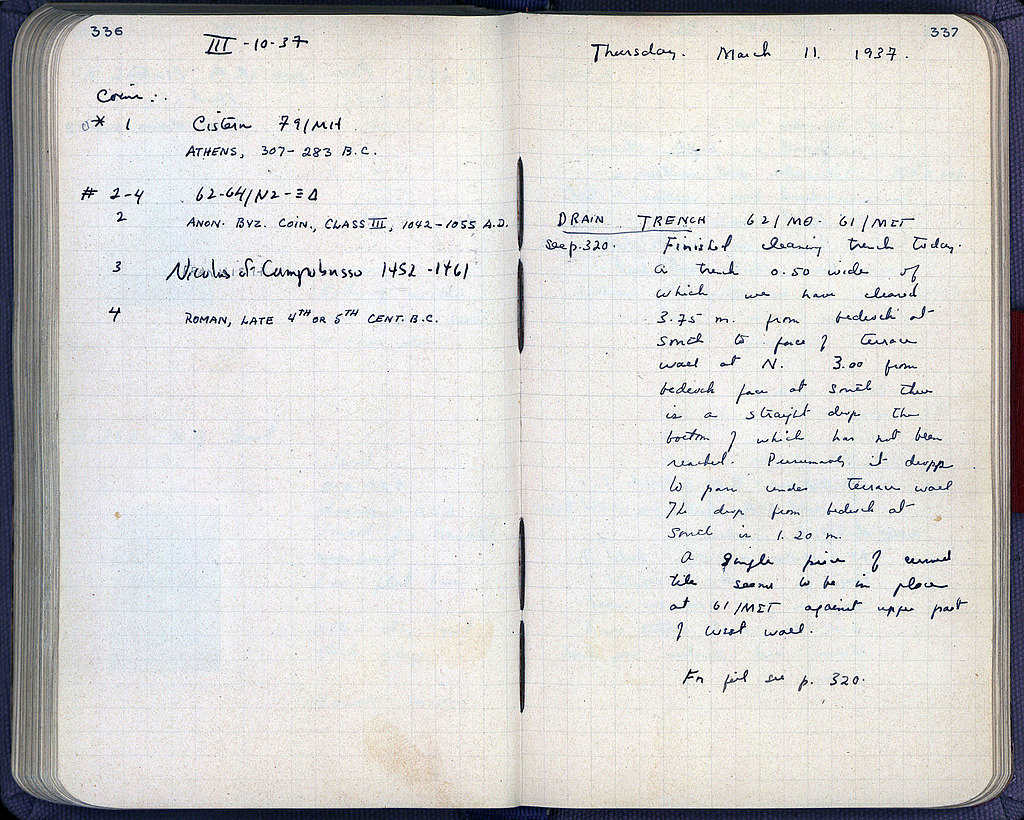 336
III - 10 - 37
Coins:
* 1 Cistern 79/ΜΗ
ATHENS, 307 - 283 B.C.
# 2-4 62-64/Ν2-ΞΔ
2 ANON. BYZ. COIN., CLASS III, 1042-1055 A.D.
3 Nicolas of Campobasso 1452-1461
4 ROMAN, LATE 4TH OR 5TH CENT. B.C.
337
Thursday. March 11. 1937.
DRAIN TRENCH 62/ΜΘ. 61/ΜΣΤ
see p. 320. Finished cleaning trench today.
A trench 0.50 wide of
which we have cleared
3.75 m. from bedrock at
south to face of terrace
wall at N. 3.00 from
bedrock face at south there
is a straight drop the
bottom of which has not been
reached. Presumably it drops
to pass under terrace wall
The drop from bedrock at
South is 1.20 m.
A single piece of curved
tile seems to be in place
at 61/ΜΣΤ against upper part
of west wall.
For fill see p. 320.